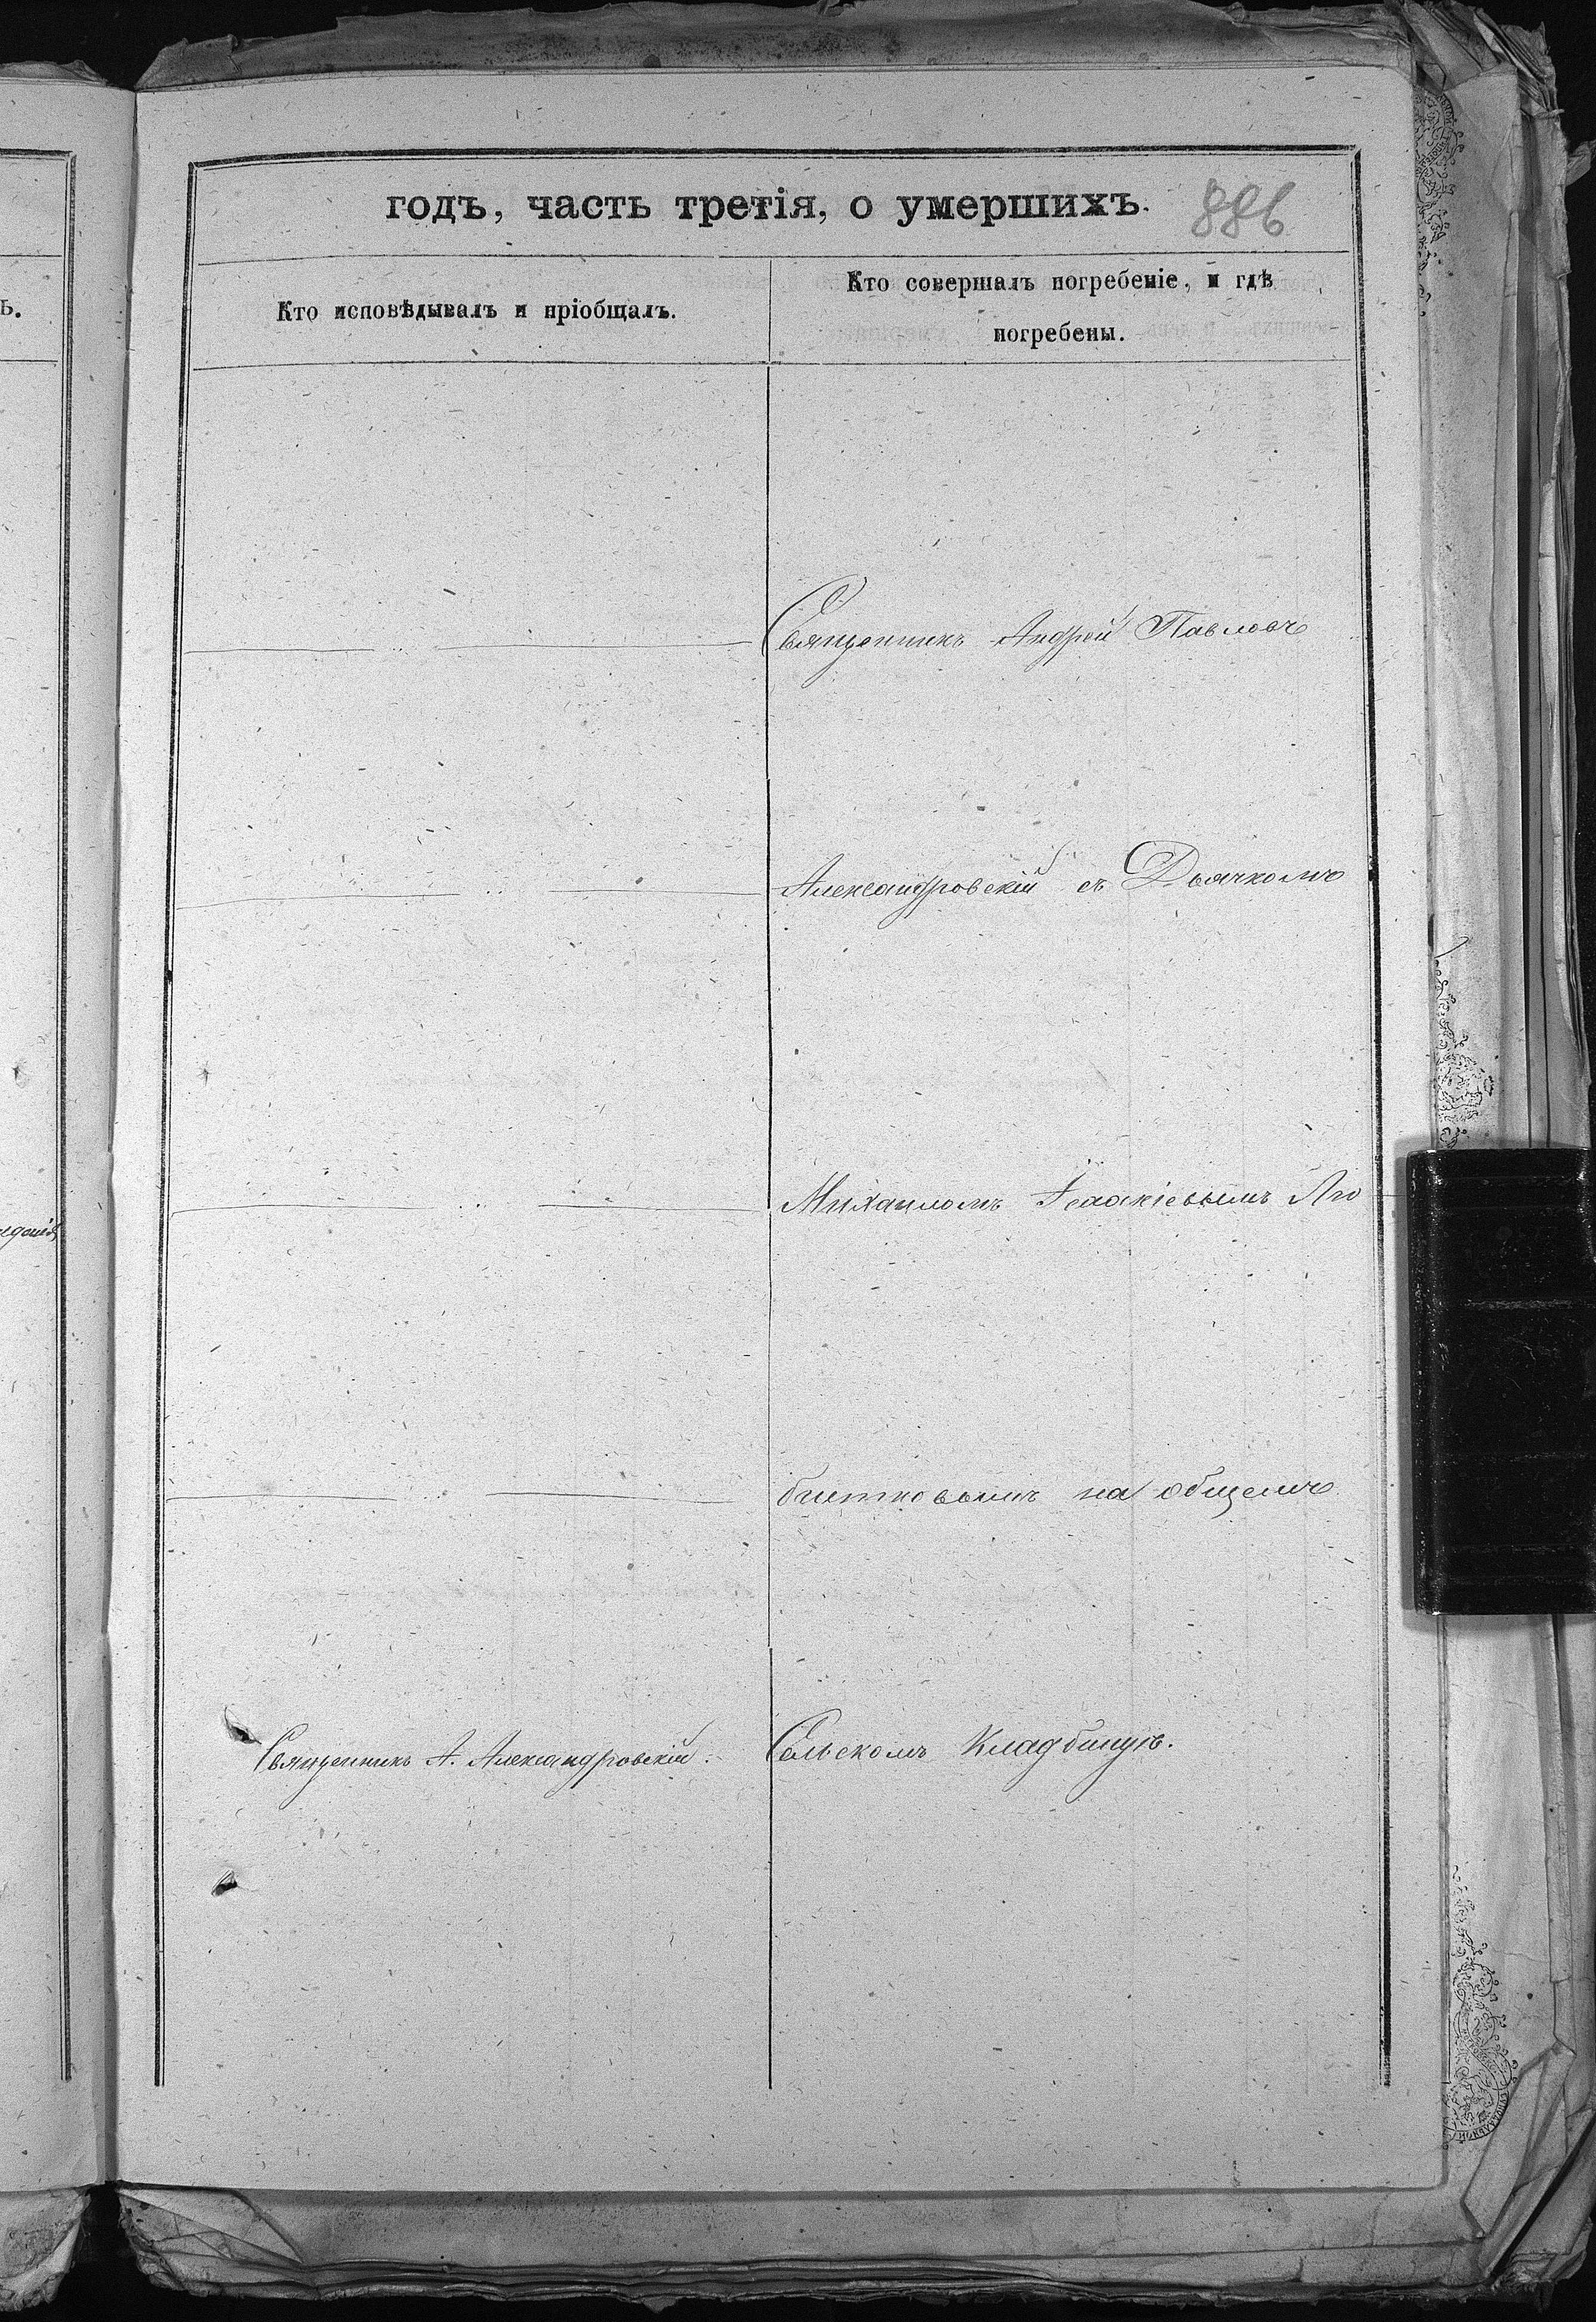 годъ, часть третія, о умершихъ. 886
Кто исповѣдывалъ и пріобщалъ.
Кто совершалъ погребеніе, и гдѣ
погребены.
Священникъ Андрей Павловъ
Александровскій съ Дьячкомъ
Михаиломъ Ісаакіевымъ Лю
битковымъ на общемъ
Священникъ А. Александровскій.
Сельскомъ Кладбищѣ.